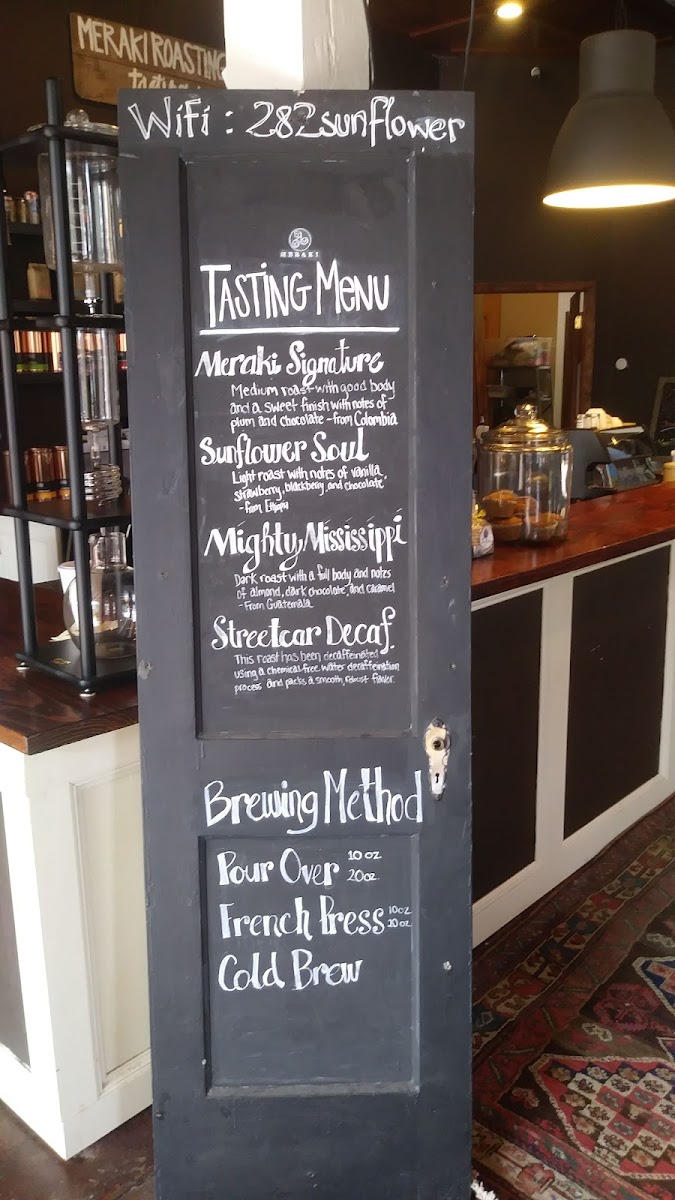 MERAKI ROASTING
WiFi : 282sunflower
MERAKI
TASTING MENU
Meraki Signature
Medium roast with good body
and a sweet finish with notes of
plum and chocolate - from Colombia
Sunflower Soul
Light roast with notes of vanilla,
strawberry, blackberry, and chocolate
- from Ethiopia
Mighty Mississippi
Dark roast with a full body and notes
of almond, dark chocolate, and caramel
- From Guatemala
Streetcar Decaf.
This roast has been decaffeinated
using a chemical free water decaffeination
process and packs a smooth, robust flavor.
Brewing Method
Pour Over 10 oz
20oz
French Press 10oz
20oz
Cold Brew